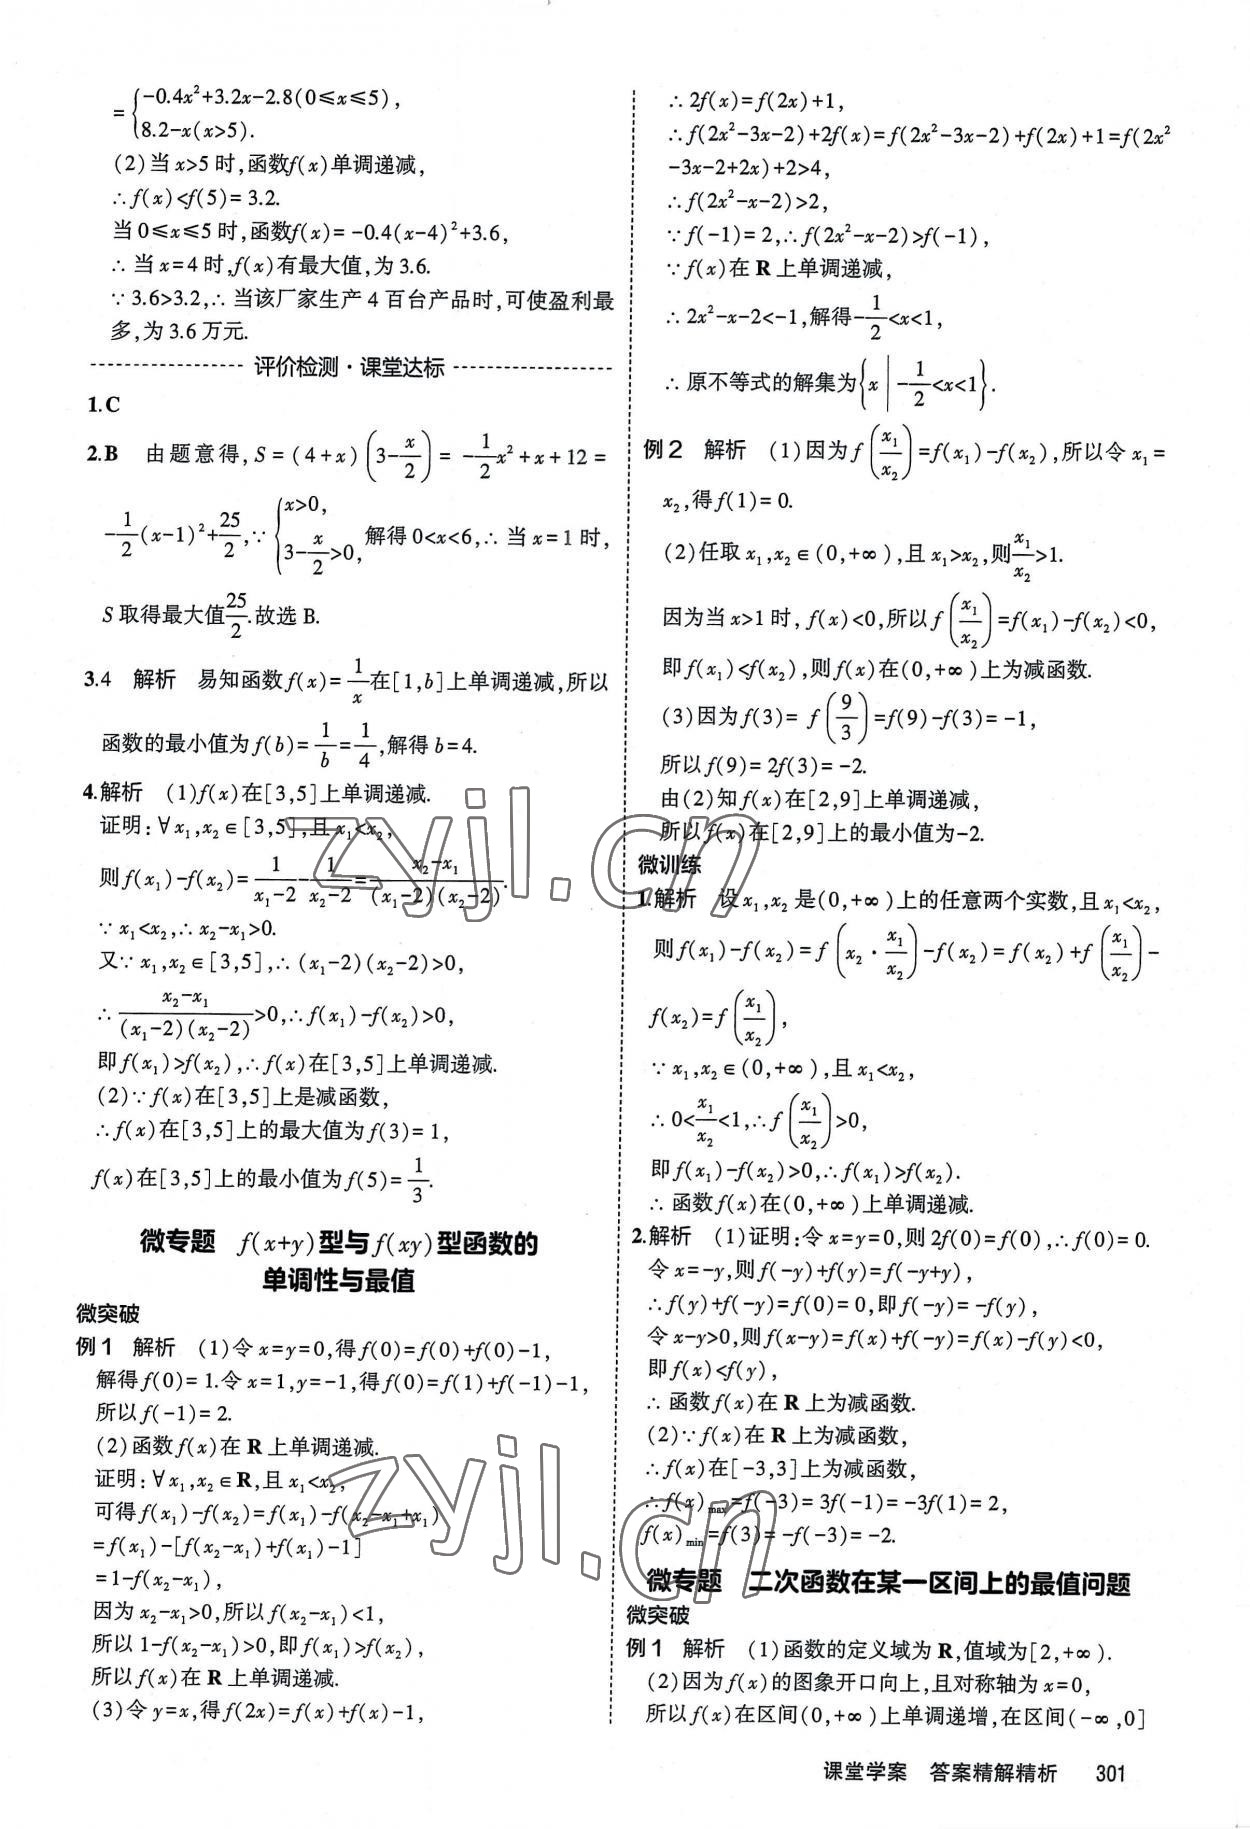 ={-0.4x²+3.2x-2.8(0≤x≤5),
8.2-x(x>5).
(2)当x>5时,函数f(x)单调递减,
∴f(x)<f(5)=3.2.
当0≤x≤5时,函数f(x)=-0.4(x-4)²+3.6,
∴当x=4时,f(x)有最大值,为3.6.
∵3.6>3.2,∴当该厂家生产4百台产品时,可使盈利最
多,为3.6万元.
评价检测·课堂达标
1.C
2.B 由题意得,S=(4+x)(3-x/2)=-1/2x²+x+12=
-1/2(x-1)²+25/2,∵{x>0, 3-x/2>0, 解得0<x<6,∴当x=1时,
S取得最大值25/2.故选B.
3.4 解析 易知函数f(x)=1/x在[1,b]上单调递减,所以
函数的最小值为f(b)=1/b=1/4,解得b=4.
4.解析 (1)f(x)在[3,5]上单调递减.
证明:∀x₁,x₂∈[3,5],且x₁<x₂,
则f(x₁)-f(x₂)=1/(x₁-2)-1/(x₂-2)=(x₂-x₁)/((x₁-2)(x₂-2)).
∵x₁<x₂,∴x₂-x₁>0.
又∵x₁,x₂∈[3,5],∴(x₁-2)(x₂-2)>0,
∴(x₂-x₁)/((x₁-2)(x₂-2))>0,∴f(x₁)-f(x₂)>0,
即f(x₁)>f(x₂),∴f(x)在[3,5]上单调递减.
(2)∵f(x)在[3,5]上是减函数,
∴f(x)在[3,5]上的最大值为f(3)=1,
f(x)在[3,5]上的最小值为f(5)=1/3.
微专题 f(x+y)型与f(xy)型函数的
单调性与最值
微突破
例1 解析 (1)令x=y=0,得f(0)=f(0)+f(0)-1,
解得f(0)=1.令x=1,y=-1,得f(0)=f(1)+f(-1)-1,
所以f(-1)=2.
(2)函数f(x)在R上单调递减.
证明:∀x₁,x₂∈R,且x₁<x₂,
可得f(x₁)-f(x₂)=f(x₁)-f(x₂-x₁+x₁)
=f(x₁)-[f(x₂-x₁)+f(x₁)-1]
=1-f(x₂-x₁),
因为x₂-x₁>0,所以f(x₂-x₁)<1,
所以1-f(x₂-x₁)>0,即f(x₁)>f(x₂),
所以f(x)在R上单调递减.
(3)令y=x,得f(2x)=f(x)+f(x)-1,
∴2f(x)=f(2x)+1,
∴f(2x²-3x-2)+2f(x)=f(2x²-3x-2)+f(2x)+1=f(2x²
-3x-2+2x)+2>4,
∴f(2x²-x-2)>2,
∵f(-1)=2,∴f(2x²-x-2)>f(-1),
∵f(x)在R上单调递减,
∴2x²-x-2<-1,解得-1/2<x<1,
∴原不等式的解集为{x|-1/2<x<1}.
例2 解析 (1)因为f(x₁/x₂)=f(x₁)-f(x₂),所以令x₁=
x₂,得f(1)=0.
(2)任取x₁,x₂∈(0,+∞),且x₁>x₂,则x₁/x₂>1.
因为当x>1时,f(x)<0,所以f(x₁/x₂)=f(x₁)-f(x₂)<0,
即f(x₁)<f(x₂),则f(x)在(0,+∞)上为减函数.
(3)因为f(3)=f(9/3)=f(9)-f(3)=-1,
所以f(9)=2f(3)=-2.
由(2)知f(x)在[2,9]上单调递减,
所以f(x)在[2,9]上的最小值为-2.
微训练
1.解析 设x₁,x₂是(0,+∞)上的任意两个实数,且x₁<x₂,
则f(x₁)-f(x₂)=f(x₂·x₁/x₂)-f(x₂)=f(x₂)+f(x₁/x₂)-
f(x₂)=f(x₁/x₂),
∵x₁,x₂∈(0,+∞),且x₁<x₂,
∴0<x₁/x₂<1,∴f(x₁/x₂)>0,
即f(x₁)-f(x₂)>0,∴f(x₁)>f(x₂).
∴函数f(x)在(0,+∞)上单调递减.
2.解析 (1)证明:令x=y=0,则2f(0)=f(0),∴f(0)=0.
令x=-y,则f(-y)+f(y)=f(-y+y),
∴f(y)+f(-y)=f(0)=0,即f(-y)=-f(y),
令x-y>0,则f(x-y)=f(x)+f(-y)=f(x)-f(y)<0,
即f(x)<f(y),
∴函数f(x)在R上为减函数.
(2)∵f(x)在R上为减函数,
∴f(x)在[-3,3]上为减函数,
∴f(x)max=f(-3)=3f(-1)=-3f(1)=2,
f(x)min=f(3)=-f(-3)=-2.
微专题 二次函数在某一区间上的最值问题
微突破
例1 解析 (1)函数的定义域为R,值域为[2,+∞).
(2)因为f(x)的图象开口向上,且对称轴为x=0,
所以f(x)在区间(0,+∞)上单调递增,在区间(-∞,0]
课堂学案 答案精解精析 301
zyjl.cn
zyjl.cn